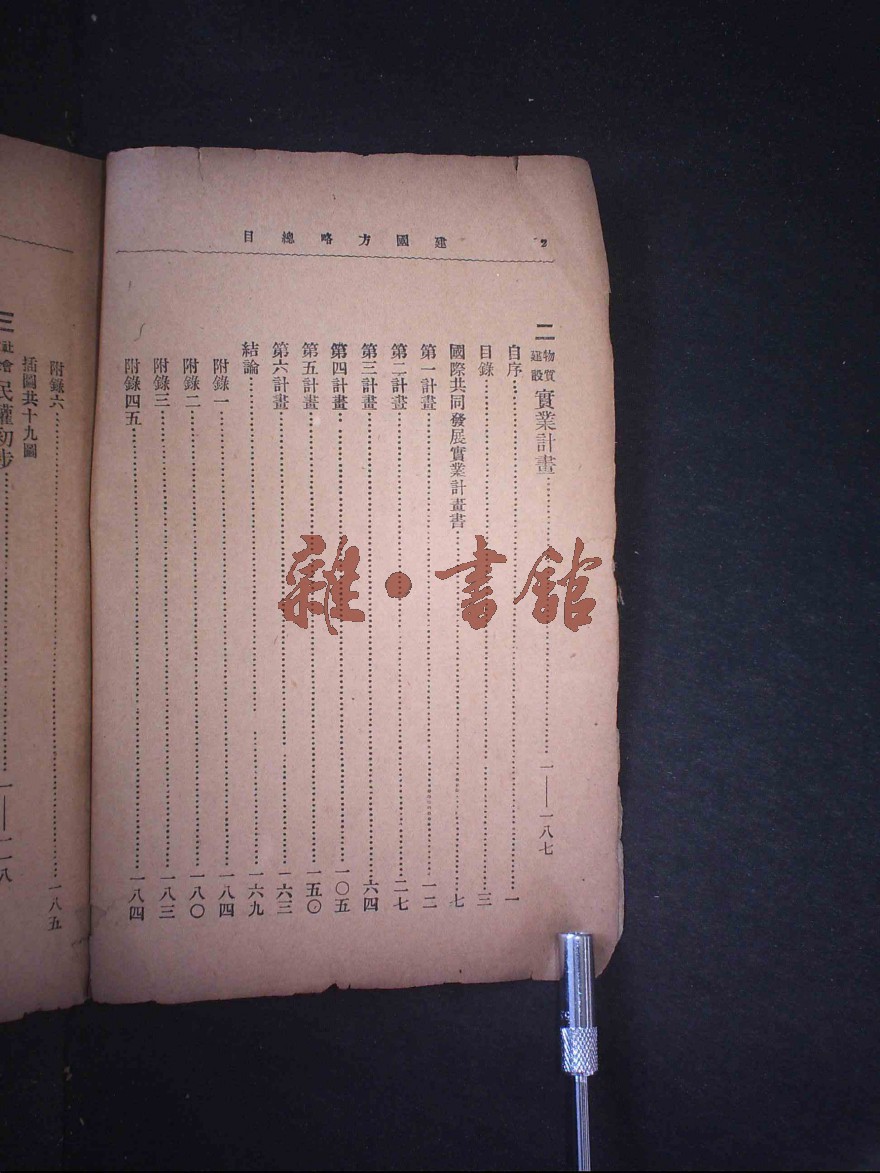 建國方略總目
2
二 物質建設 實業計畫 一——一八七
自序 一
目錄 三
國際共同發展實業計畫書 七
第一計畫 一二
第二計畫 二七
第三計畫 六四
第四計畫 一〇五
第五計畫 一五〇
第六計畫 一六三
結論 一六九
附錄一 一八四
附錄二 一八〇
附錄三 一八三
附錄四五 一八四
附錄六 一八五
插圖共十九圖
三 社會 民權初步 一——一一八
雜·書館